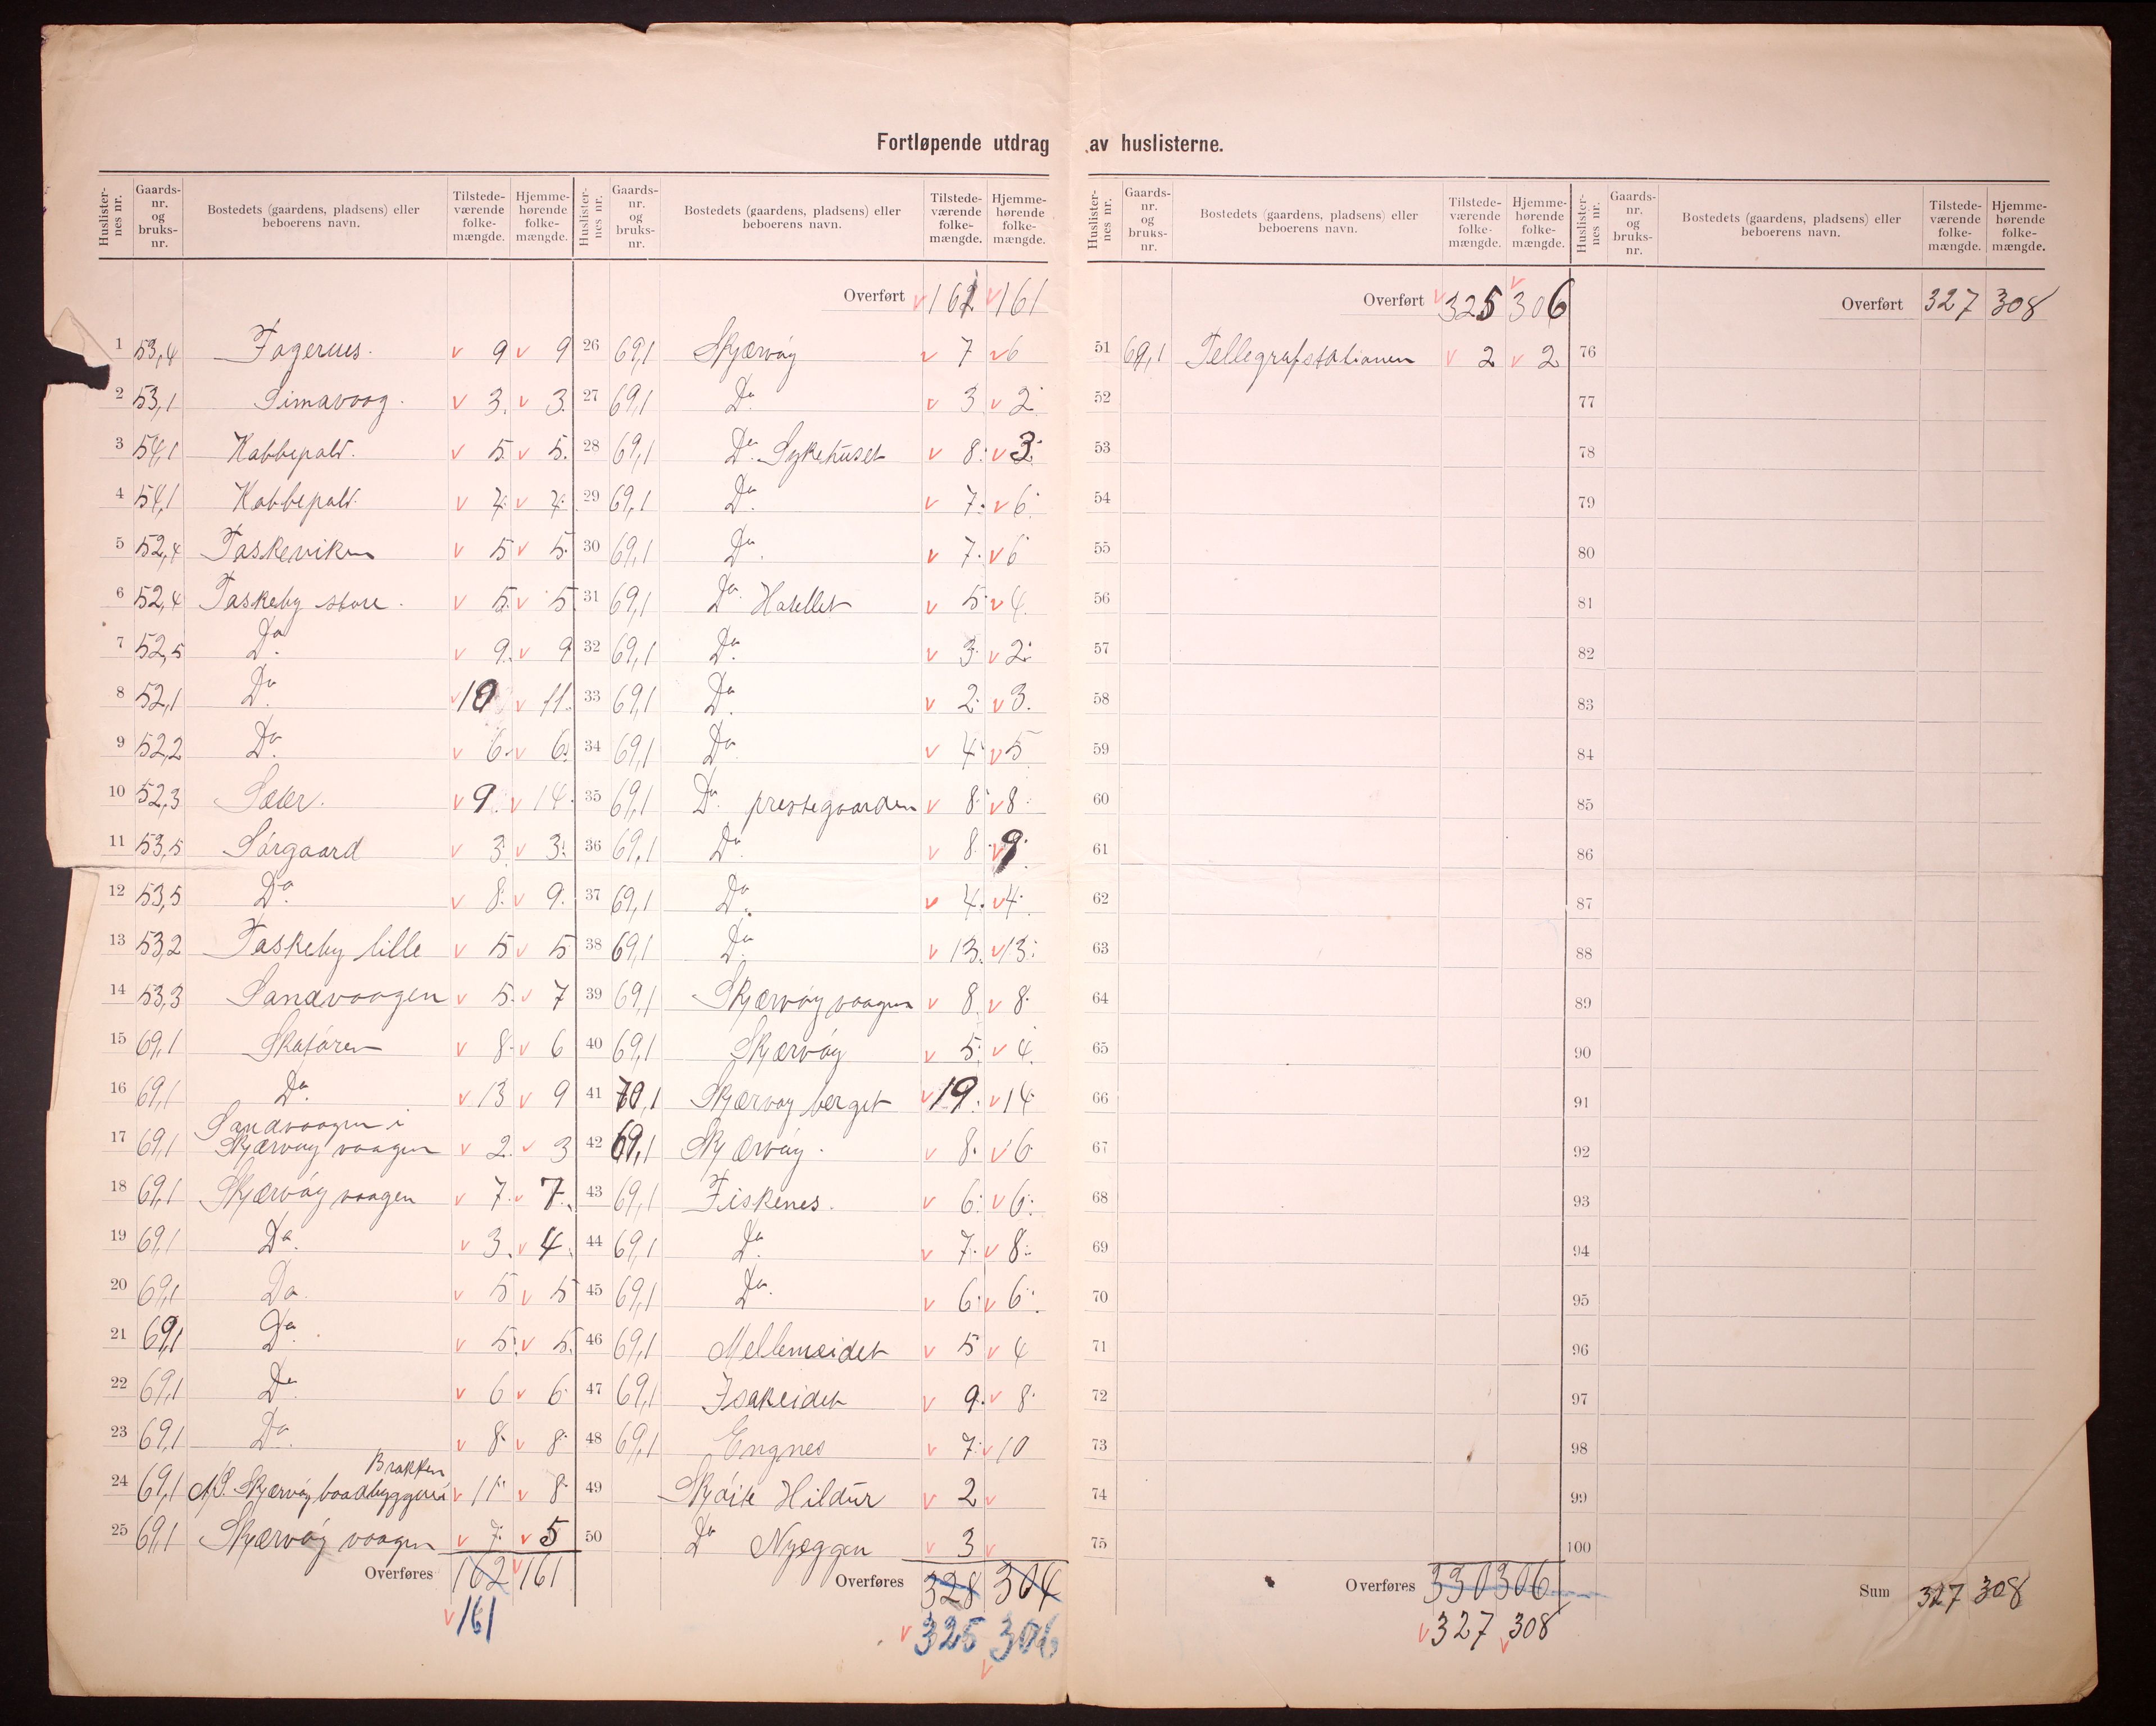 Fortløpende utdrag av huslisterne.
Huslisternes nr. Gaards-nr. og bruks-nr. Bostedets (gaardens, pladsens) eller beboerens navn. Tilstede-værende folke-mængde. Hjemme-hørende folke-mængde.
1 53,4 Fagernes. v 9 v 9
2 53,1 Simavaag. v 3. v 3.
3 54,1 Kobbepalt. v 5 v 5.
4 54,1 Kobbepalt. v 7. v 7.
5 52,4 Taskeviken v 5 v 5.
6 52,4 Taskeby store. v 5 v 5
7 52,5 Do. v 9. v 9
8 52,1 Do. v 10 v 11.
9 52,2 Do. v 6. v 6.
10 52,3 v 9. v 14.
11 53,5 Sörgaard v 3. v 3.
12 53,5 Do. v 8. v 9.
13 53,2 Taskeby lille v 5 v 5
14 53,3 Sandvaagen v 5. v 7
15 69,1 Skatören v 8. v 6
16 69,1 Do. v 13 v 9
17 69,1 Sandvaagen i
Skjærvöy vaagen v 2. v 3
18 69,1 Skjærvöy vaagen v 7. v 7.
19 69,1 Do. v 3. v 4.
20 69,1 Do. v 5 v 5
21 69,1 Do. v 5. v 5.
22 69,1 Do. v 6 v 6
23 69,1 Do. v 8. v 8.
Brakken
24 69,1 Skjærvöy baadbyggeri v 11 v 8.
25 69,1 Skjærvöy vaagen v 7. v 5
Overføres 162 v 161
v 161
Huslisternes nr. Gaards-nr. og bruks-nr. Bostedets (gaardens, pladsens) eller beboerens navn. Tilstede-værende folke-mængde. Hjemme-hørende folke-mængde.
Overført v 161 v 161
26 69,1 Skjærvöy v 7 v 6
27 69,1 Do. v 3 v 2.
28 69,1 Do. Sykehuset v 8. v 3.
29 69,1 Do. v 7. v 6.
30 69,1 Do. v 7. v 6
31 69,1 Do. Hotellet v 5. v 4.
32 69,1 Do. v 3. v 2.
33 69,1 Do. v 2. v 3.
34 69,1 Do. v 4. v 5
35 69,1 Do. prestegaarden v 8. v 8.
36 69,1 Do. v 8. v 9.
37 69,1 Do. v 4. v 4.
38 69,1 Do. v 13. v 13.
39 69,1 Skjærvöy vaagen v 8. v 8.
40 69,1 Skjærvöy v 5. v 4.
41 70,1 Skjærvöy berget v 19. v 14.
42 69,1 Skjærvöy. v 8. v 6
43 69,1 Fiskenes. v 6. v 6.
44 69,1 Do. v 7. v 8.
45 69,1 Do. v 6. v 6.
46 69,1 Mellemeidet v 5 v 4
47 69,1 Isakeidet v 9. v 8.
48 69,1 Engnes v 7. v 10
49 Skjöite Hildur v 2 v
50 Do Nyeggen v 3 v
Overføres 328 304
v 325 306
v
Huslisternes nr. Gaards-nr. og bruks-nr. Bostedets (gaardens, pladsens) eller beboerens navn. Tilstede-værende folke-mængde. Hjemme-hørende folke-mængde.
Overført v 325 v 306
51 69,1 Tellegrafstationen v 2 v 2
52
53
54
55
56
57
58
59
60
61
62
63
64
65
66
67
68
69
70
71
72
73
74
75
Overføres 330 306
v 327 v 308
Huslisternes nr. Gaards-nr. og bruks-nr. Bostedets (gaardens, pladsens) eller beboerens navn. Tilstede-værende folke-mængde. Hjemme-hørende folke-mængde.
Overført 327 308
76
77
78
79
80
81
82
83
84
85
86
87
88
89
90
91
92
93
94
95
96
97
98
99
100
Sum 327 308